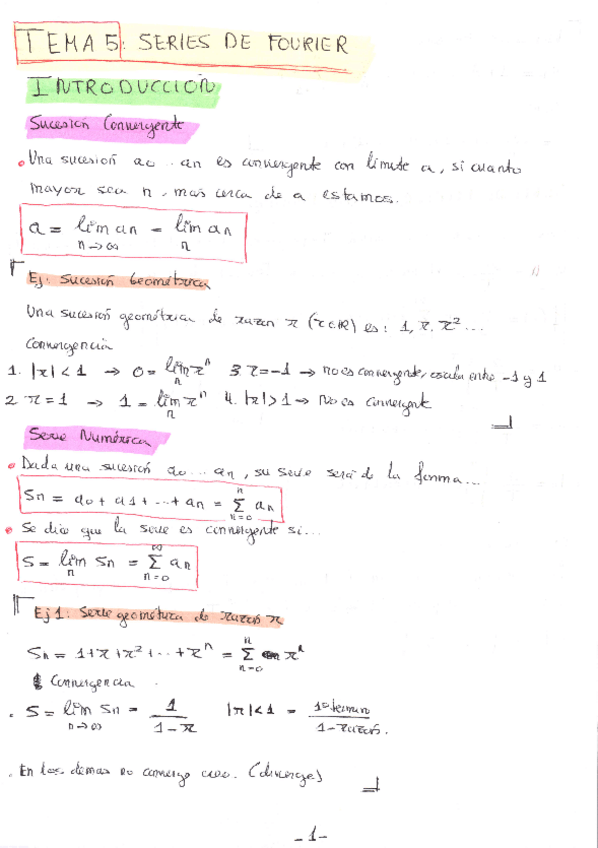 TEMA 5: SERIES DE FOURIER
INTRODUCCIÓN
Sucesión Convergente
Una sucesión a0...an es convergente con límite a, si cuanto
mayor sea n, mas cerca de a estamos.
a = lim an = lim an
n→∞ n
Ej: Sucesión Geométrica
Una sucesión geométrica de razon r (r∈R) es: 1, r, r²...
Convergencia
1. |r| < 1 → 0 = lim rⁿ 3 r=-1 → no es convergente, oscila entre -1 y 1
n
2 r = 1 → 1 = lim rⁿ 4. |r| > 1 → No es convergente
n
Serie Numérica
Dada una sucesión a0...an, su serie será de la forma...
Sn = a0 + a1 + ... + an = Σ an
n
n=0
Se dice que la serie es convergente si...
S = lim Sn = Σ an
n ∞
n=0
Ej 1: Serie geométrica de razón r
Sn = 1+r+r²+...+rⁿ = Σ rⁿ
n
n=0
Convergencia
S = lim Sn = 1 / 1-r |r|<1 = 1º termino / 1-razón.
n→∞
En las demas no converge (diverge)
-1-